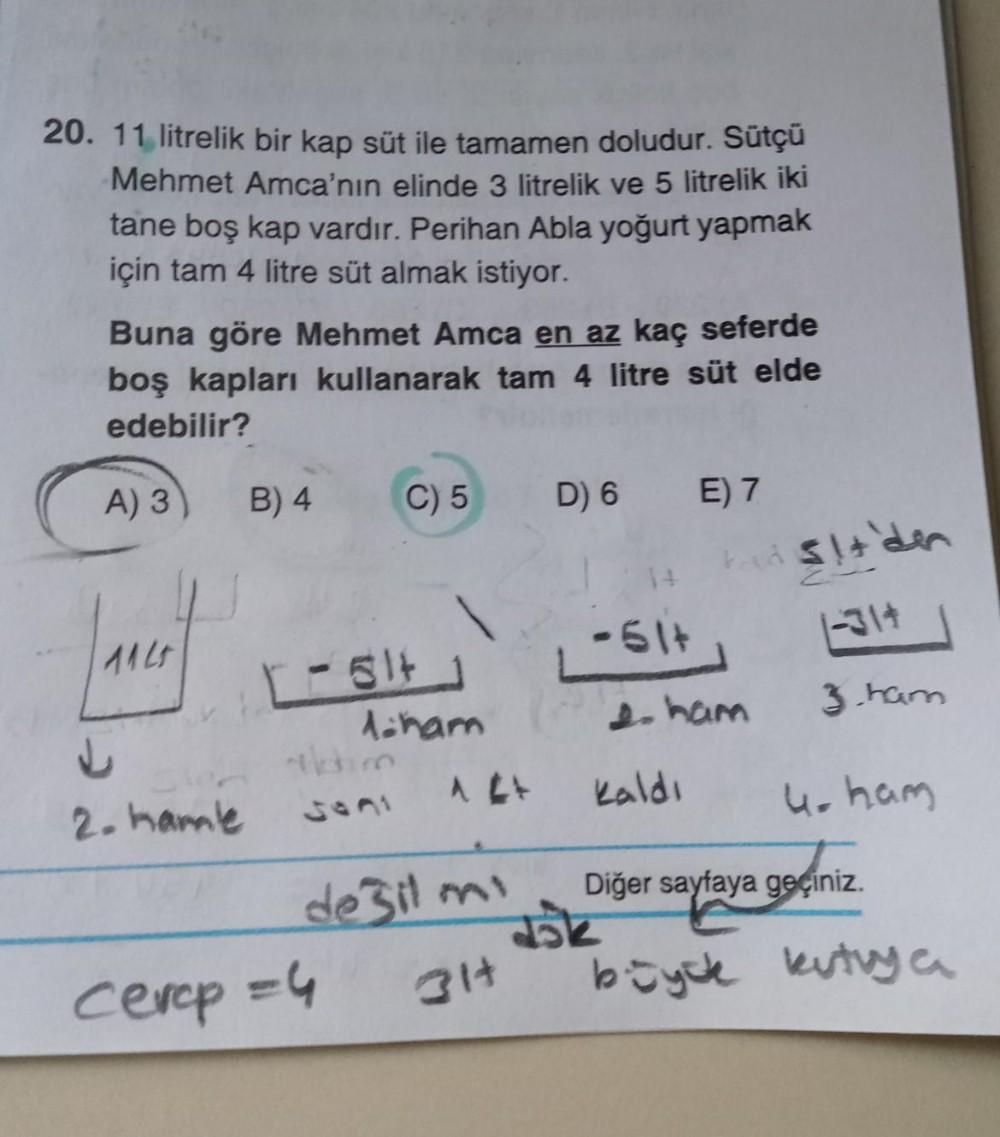 20. 11 litrelik bir kap süt ile tamamen doludur. Sütçü
Mehmet Amca'nın elinde 3 litrelik ve 5 litrelik iki
tane boş kap vardır. Perihan Abla yoğurt yapmak
için tam 4 litre süt almak istiyor.
Buna göre Mehmet Amca en az kaç seferde
boş kapları kullanarak tam 4 litre süt elde
edebilir?
A) 3 B) 4 C) 5 D) 6 E) 7
5lt'den
11 Lt -5lt -5lt -3lt
1. ham 2. ham 3. ham
2. hamle sonı 1 Lt kaldı 4. ham
değil mi
Diğer sayfaya geçiniz.
dök
cevap = 4 3lt büyük kutuya